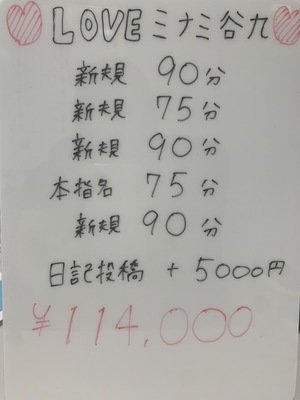 LOVEミナミ谷九
新規 90分
新規 75分
新規 90分
本指名 75分
新規 90分
日記投稿 + 5000円
¥114,000